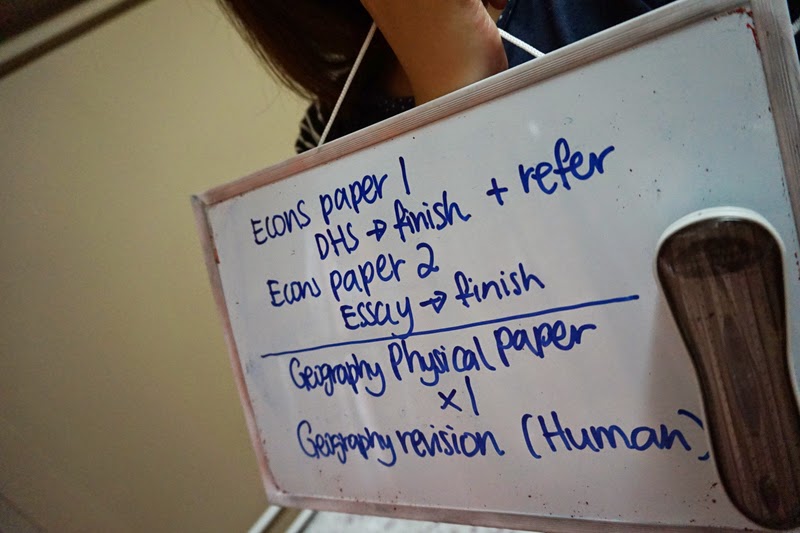 Econs paper 1
DHS → finish + refer
Econs paper 2
Essay → finish
Geography Physical Paper
x1
Geography revision (Human)